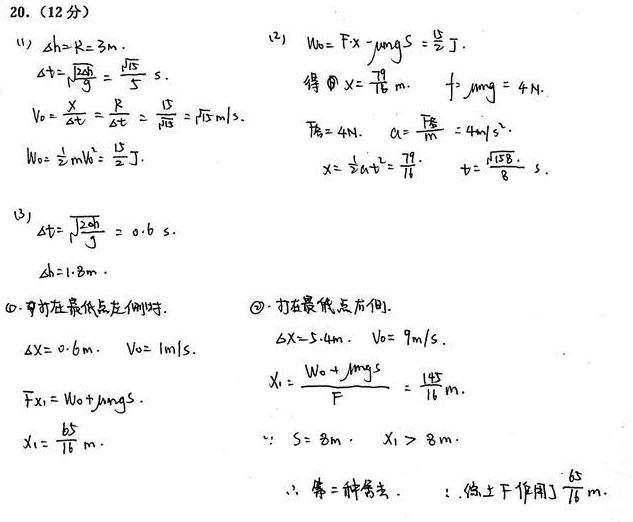 20. (12分)
(1) Δh=R=3m.
Δt=√(2Δh/g) = √15/5 s.
V₀= x/Δt = R/Δt = 15/√15 = √15 m/s.
W₀= ½mV₀² = 15/2 J.
(2) W₀= F·x - μmgS = 15/2 J.
得 x= 79/16 m. f=μmg = 4N.
F合= 4N. a= F合/m = 4m/s².
x= ½at² = 79/16. t= √158/8 s.
(3)
Δt= √(2Δh/g) = 0.6 s.
Δh=1.8m.
①.打在最低点左侧时.
Δx= 0.6m. V₀= 1m/s.
Fx₁= W₀+μmgs.
x₁= 65/16 m.
②.打在最低点右侧.
Δx=5.4m. V₀= 9m/s.
x₁= (W₀+μmgs)/F = 145/16 m.
∵ S= 8m. x₁ > 8m.
∴ 第二种舍去. ∴综上F作用了 65/16 m.